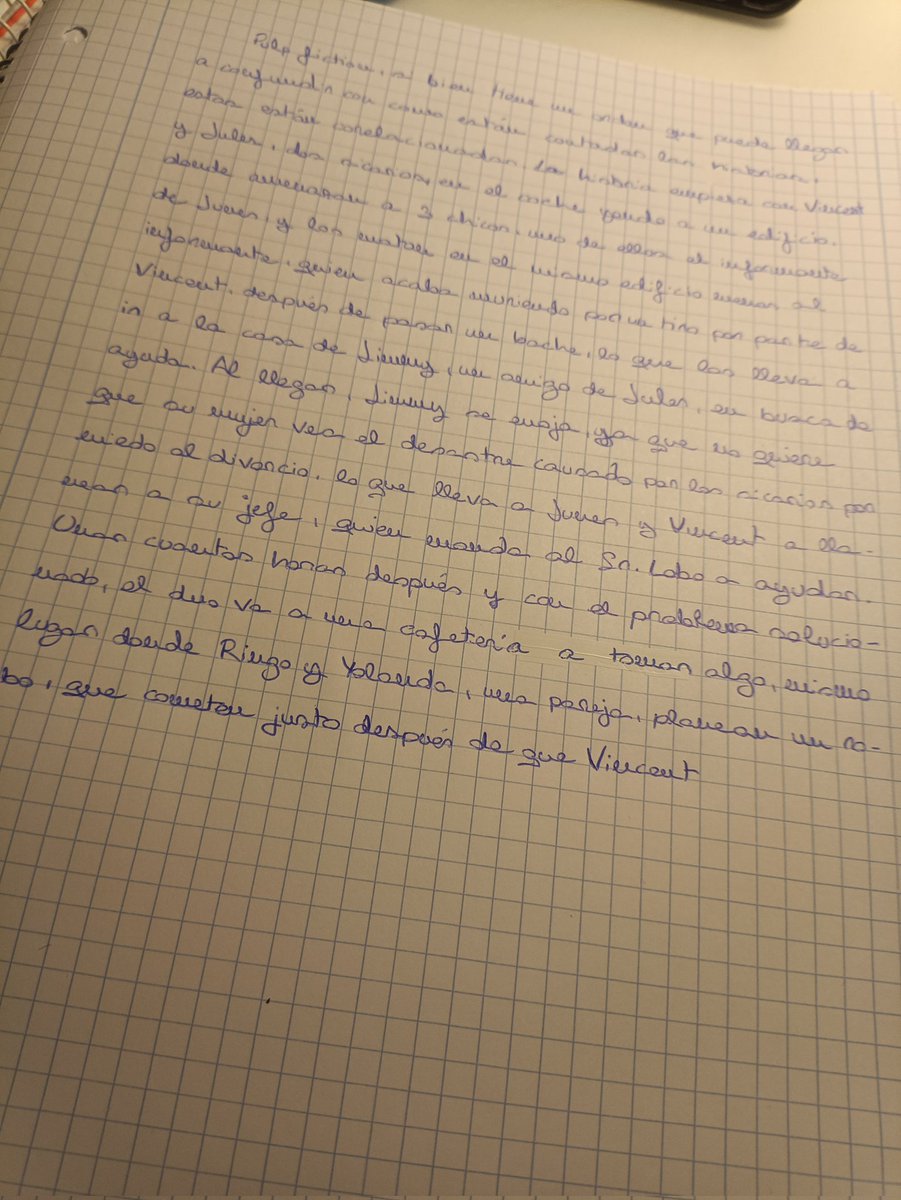 Pulp fiction, si bien tiene un orden que puede llegar
a confundir con como están contadas las historias,
estas están correlacionadas. La historia empieza con Vincent
y Jules, dos sicarios, en el coche yendo a un edificio.
donde amenazan a 3 chicos, uno de ellos el informante
de Jules, y los matan en el mismo edificio menos al
informante, quien acaba muriendo por un tiro por parte de
Vincent. después de pasar un bache, lo que los lleva a
ir a la casa de Jimmy, un amigo de Jules, en busca de
ayuda. Al llegar, Jimmy se enoja, ya que no quiere
que su mujer vea el desastre causado por los sicarios por
miedo al divorcio, lo que lleva a Jules y Vincent a lla-
mar a su jefe, quien manda al Sr. Lobo a ayudar.
Unos cuantas horas después y con el problema solucio-
nado, el duo va a una cafetería a tomar algo, mismo
lugar donde Ringo y Yolanda, una pareja, planean un ro-
bo, que cometen justo después de que Vincent